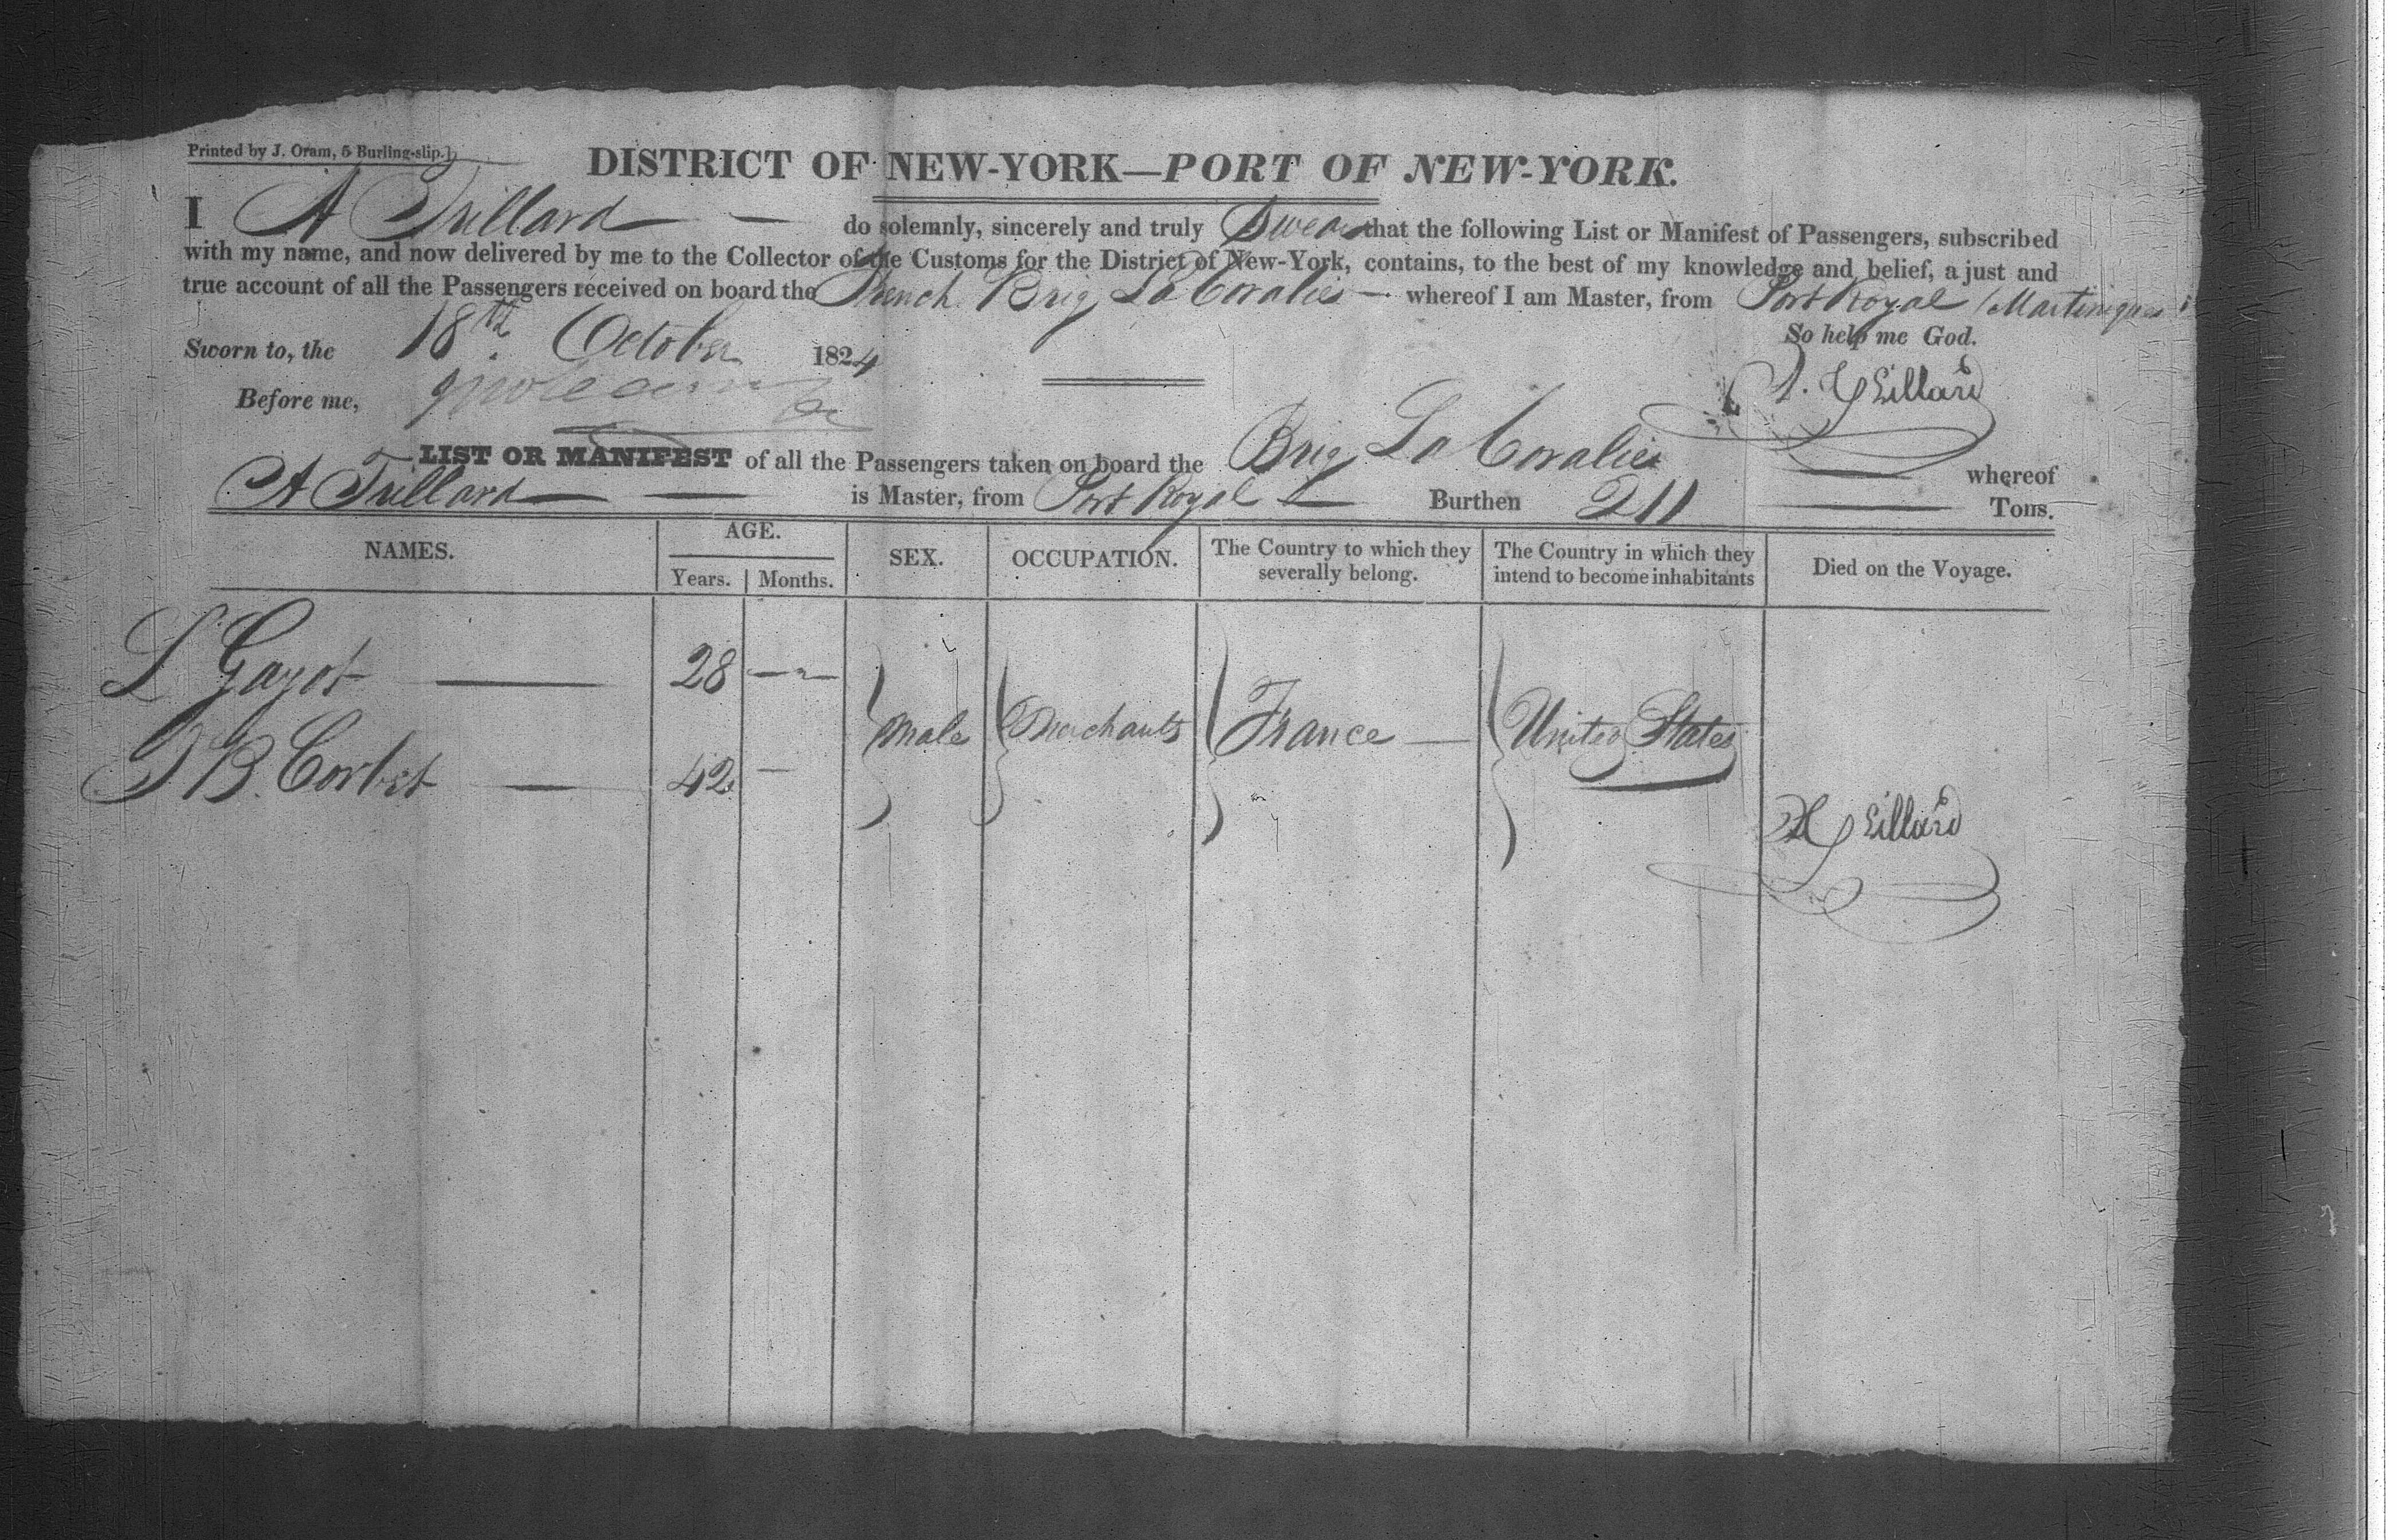 Printed by J. Oram, 5 Burling-slip.]
DISTRICT OF NEW-YORK—PORT OF NEW-YORK.
I A Trillard do solemnly, sincerely and truly Swear that the following List or Manifest of Passengers, subscribed
with my name, and now delivered by me to the Collector of the Customs for the District of New-York, contains, to the best of my knowledge and belief, a just and
true account of all the Passengers received on board the French Brig La Coralie — whereof I am Master, from Port Royal (Martinique)
So help me God.
Sworn to, the 18th October 1824
Before me,
LIST OR MANIFEST of all the Passengers taken on board the Brig La Coralie — whereof
A Trillard — is Master, from Port Royal — Burthen 211 — Tons.
NAMES. AGE. SEX. OCCUPATION. The Country to which they severally belong. The Country in which they intend to become inhabitants Died on the Voyage.
Years. Months.
L Gayot — 28 —
Male Merchants France — United States
B. Corbet — 42 —